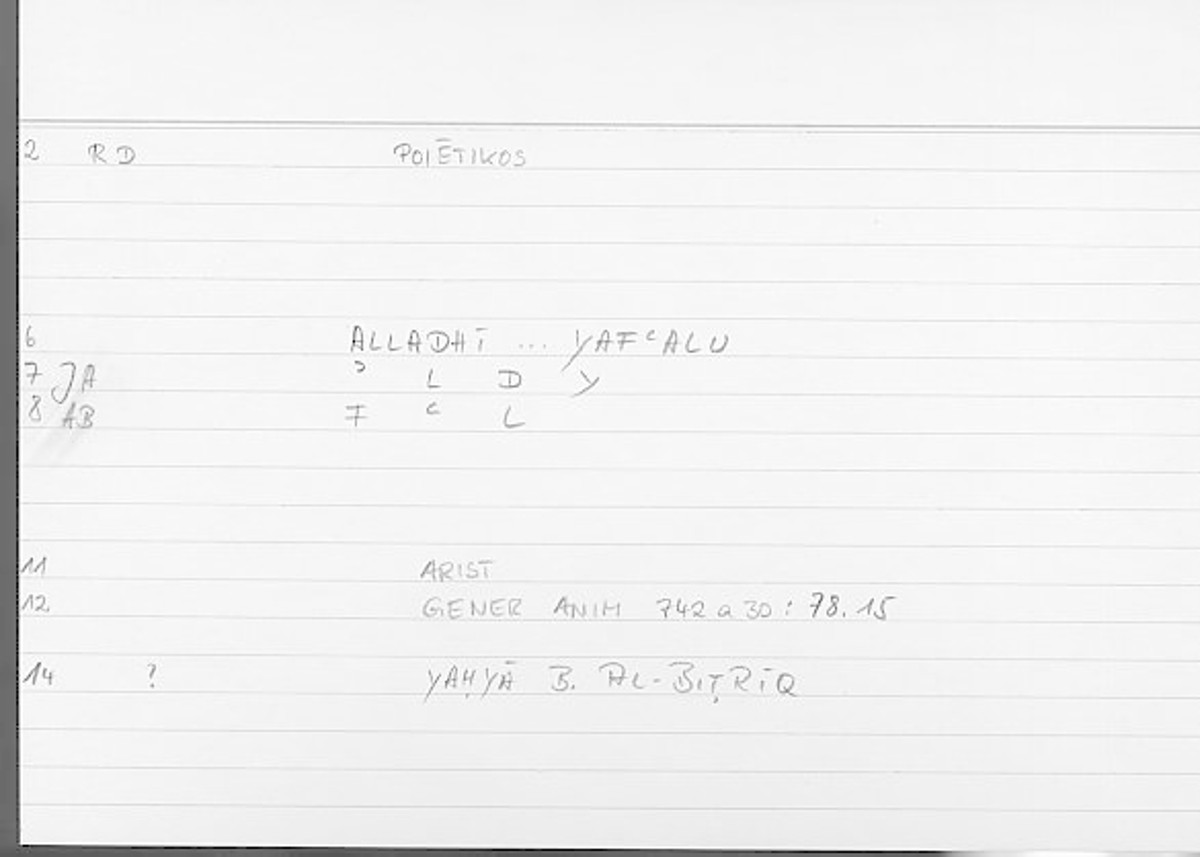 2 RD POIĒTIKOS
6 ALLADHĪ ... YAFʿALU
7 JA ʾ L D Y
8 AB F ʿ L
11 ARIST
12 GENER ANIM 742 a 30 : 78.15
14 ? YAḤYĀ B. AL-BIṬRĪQ